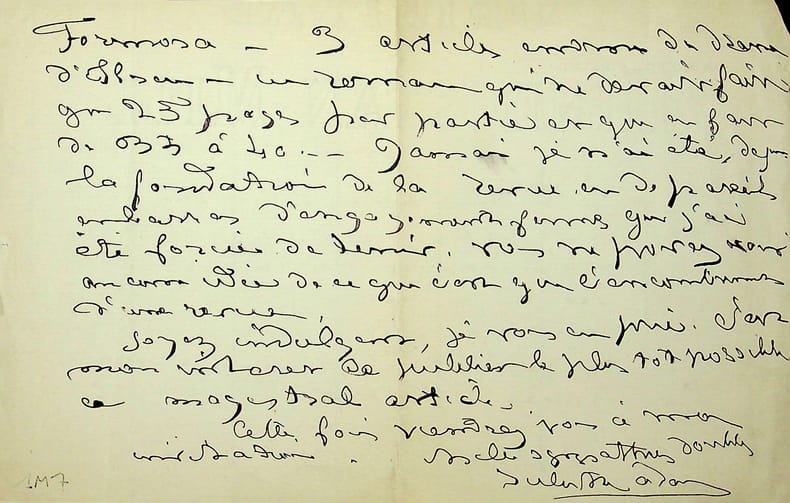 Formosa – 3 articles environ du drame
d'Ibsen – un roman qui ne devait faire
que 25 pages par partie et qui en fait
de 35 à 40 – – Jamais je n'ai été, depuis
la fondation de la revue en de pareils
embarras d'engagements fermes que j'ai
été forcée de tenir. Vous ne pouvez avoir
aucune idée de ce que c'est que l'encombrement
d'une revue.
Soyez indulgent, je vous en prie. C'est
mon intérêt de publier le plus tôt possible
ce magistral article.
Cette fois viendrez vous à mon
invitation. sympathies
Juliette Adam
1M7